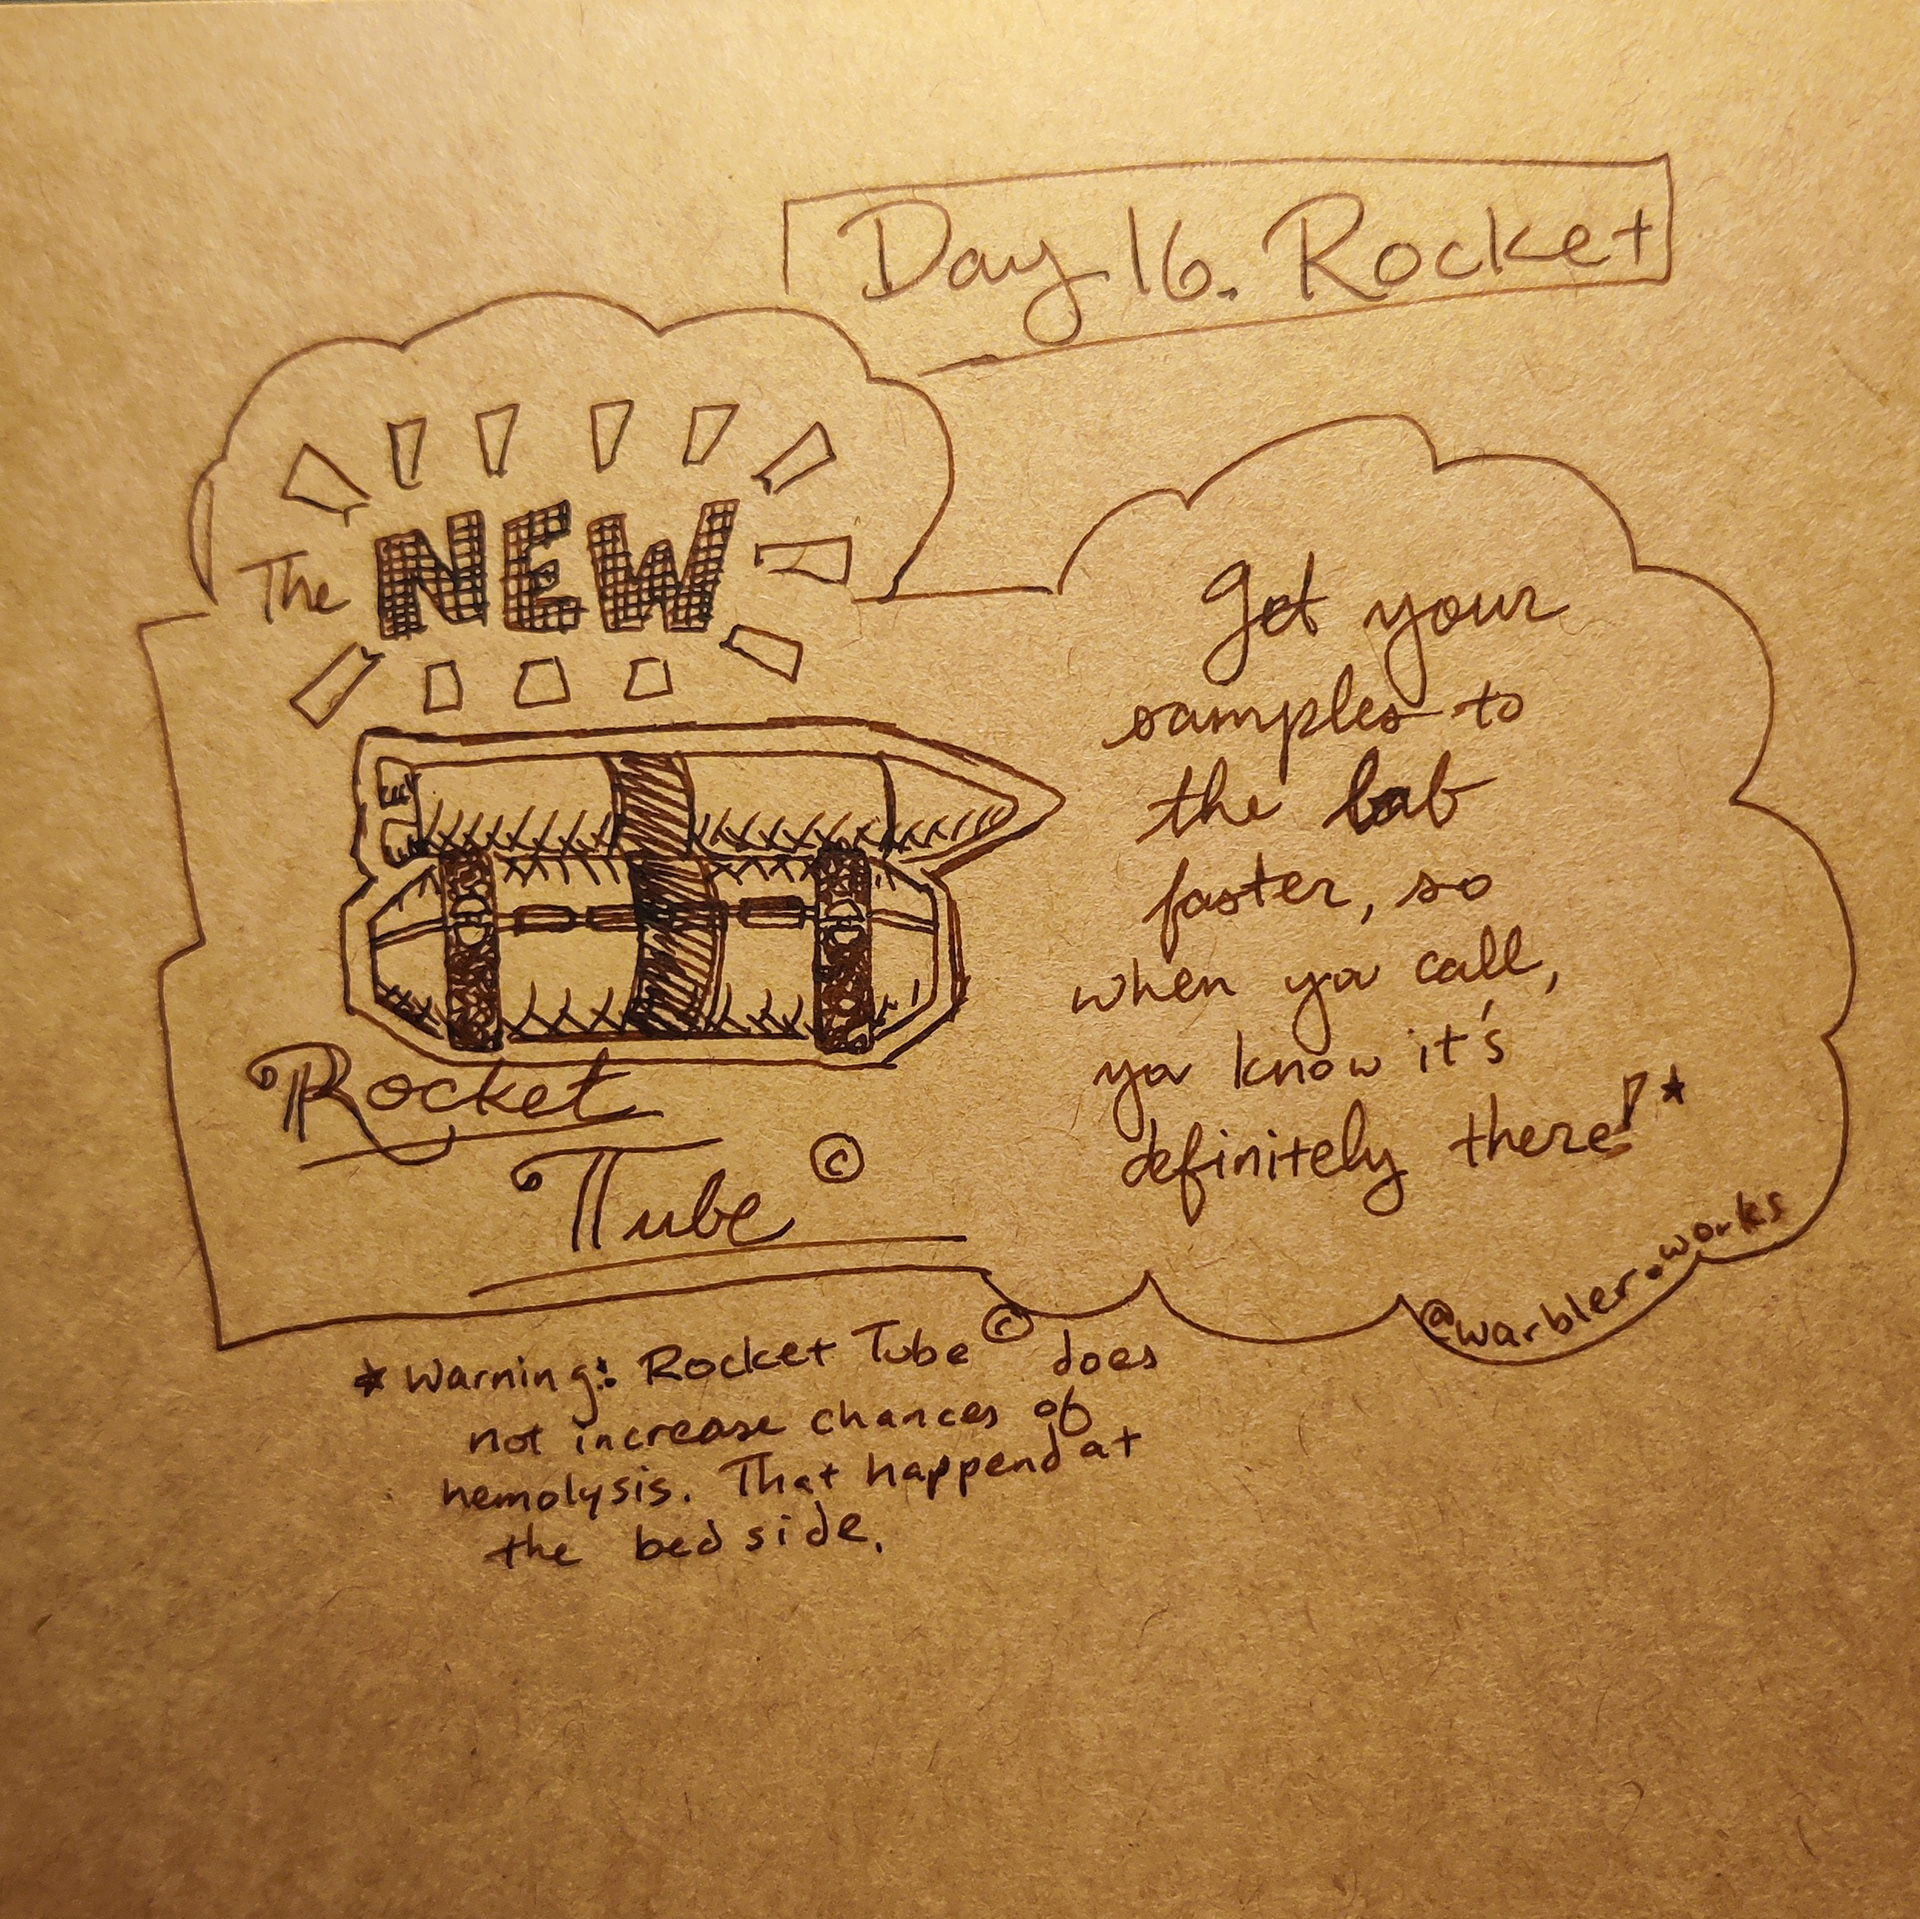 Day 16. Rocket
The NEW
Rocket
Tube ©
Get your
samples to
the lab
faster, so
when you call,
you know it's
definitely there!*
@warbler.works
* Warning: Rocket Tube© does
not increase chances of
hemolysis. That happend at
the bedside.